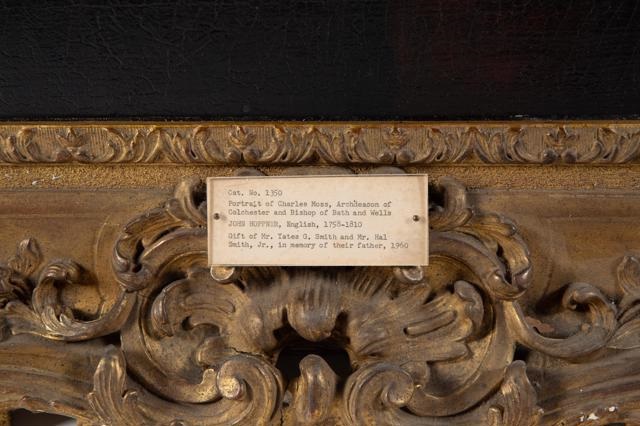 Cat. No. 1350
Portrait of Charles Moss, Archdeacon of
Colchester and Bishop of Bath and Wells
JOHN HOPPNER, English, 1758-1810
Gift of Mr. Yates G. Smith and Mr. Hal
Smith, Jr., in memory of their father, 1960